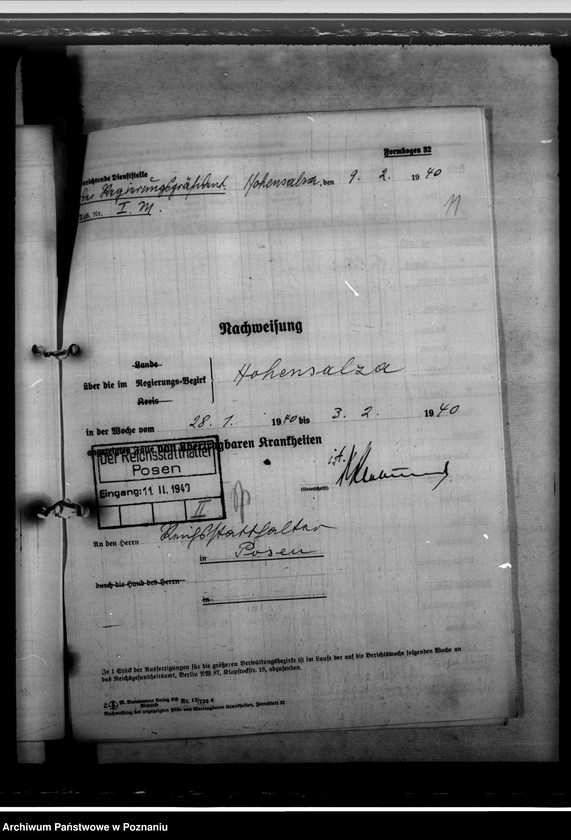 Formbogen 32
Berichtende Dienststelle
Der Regierungspräsident Hohensalza, den 9. 2. 1940
Tgb. Nr. I. M.
11
Nachweisung
Lande
über die im Regierungs-Bezirk Hohensalza
Kreis
in der Woche vom 28. 1. 1940 bis 3. 2. 1940
angezeigten Fälle von übertragbaren Krankheiten
Der Reichsstatthalter
Posen
Eingang: 11 II. 1940
II
(Unterschrift)
An den Herrn Reichsstatthalter
in Posen
durch die Hand des Herrn
in
Je 1 Stück der Ausfertigungen für die größeren Verwaltungsbezirke ist im Laufe der auf die Berichtswoche folgenden Woche an
das Reichsgesundheitsamt, Berlin NW 87, Klopstockstr. 18, abzusenden.
Nachweisung der angezeigten Fälle von übertragbaren Krankheiten, Formblatt 32
Archiwum Państwowe w Poznaniu